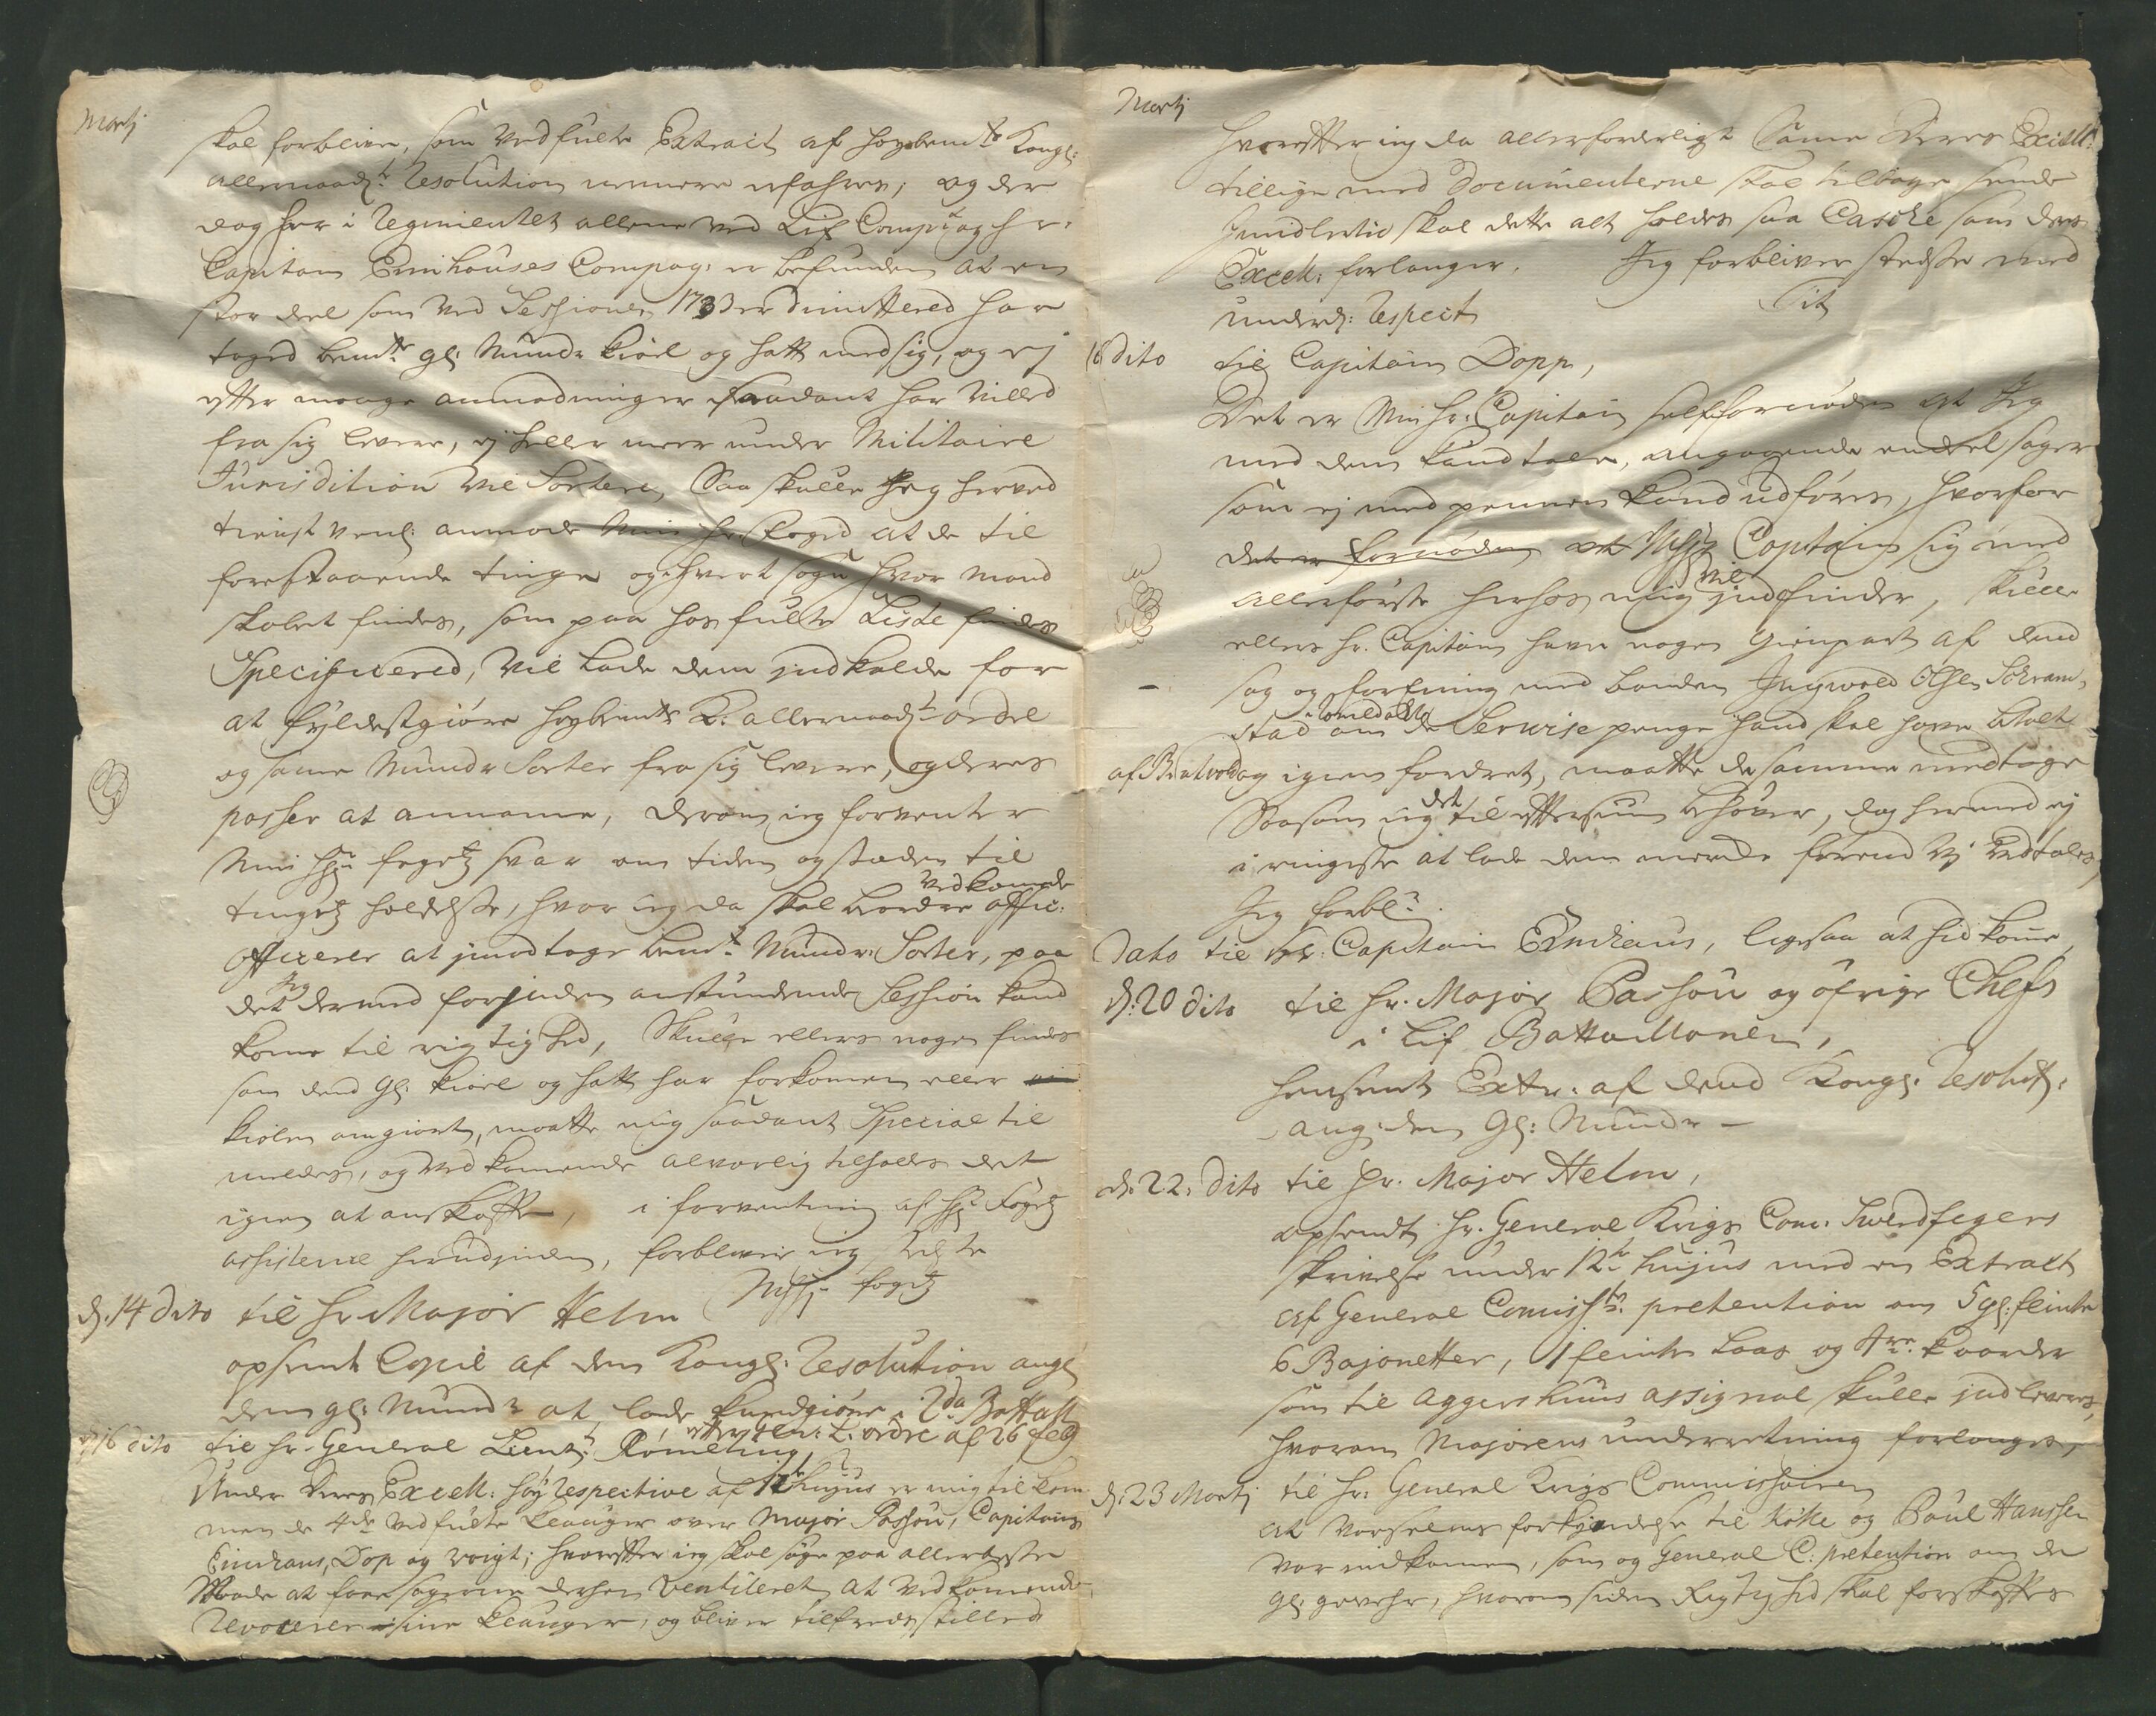 Martj
skal forblive, som vedfulte Extract af høybemte Kongl:
allernaadste Resolution nermere erfahres; og der
dog her i Regimentet allene ved Lif Compag: og hr.
Capitain Emihouses Compag: er befunden at en
stor deel som ved Sessionen 1733 er dimittered har
taged bemte gl: Mundr kiol og hatt med sig, og ej
efter mange anmodninger saadant har villed
fra sig levere, ej heller meer under Militaire
Jurisdition vil Sortere, Saa skulle Jeg herved
tienstvenl: anmode Min Hr. Foged at de til
forestaaende tinge og i hvert sogn hvor mand-
skabet findes, som paa hosfulte Liste findes
Specificered, vil lade dem indkalde for
at fyldestgiøre høybemte K: allernaadste ordre
og samme Mundr Sorter fra sig levere, og deres
passer at annamme, derom jeg forventer
Min Hr fogetz svar om tiden og stæden til
tingetz holdelse, hvor jeg da skal beordre
vedkomende
Officerer at imodtage bemte Mundr: Sorter, paa
det Jeg dermed for inden anstundende Session kand
kome til rigtighed, Skulle ellers nogen findes
som dend gl: kiol og hatt har forkomen eller
kiolen omgiort, maatte mig saadant Special til
meldes, og vedkomende alvorlig tilholdes det
igien at anskaffe, i forventning af Hr Fogetz
assistence herudjnden, forbliver jeg
fogetz
d. 14 dito til Hr. Major Helm
opsendt Copie af den Kongl: Resolution angl
dem gl: Mundr at lade kundgiøre i 2da Battall
efter Gen: L: ordre af 26 feb
d 16 dito til hr. General Lieut: Rømeling
Under Deres Excell: høy respective af 12te hujus er mig tilkom-
men de 4de vedfulte klauger over Major Passou, Capitains
Emihaus, Dop og Voigt; hvorefter jeg skal søge paa allerbeste
Maade at faae sagerne derhen ventileret at vedkomende
Revocerer sine klauger, og bliver tilfredsstilled
Martj
hvorefter jeg da allerforderligst Samme Deres Excell:
tillige med Documenterne skal tilbage sende
Jmidlertid skal dette alt holdes saa Casche som Deres
Excell: forlanger. Jeg forbliver stedsse med
underd: Respect
16 dito til Capitain Dopp,
Det er Min hr: Capitain selffornøden at Jeg
med dem kand tale, angaaende endeel sager
som ej med pennen kand udføres, hvorfor
det er fornøden at Capitain sig med
allerførste herhos mig vil jndfinder, skulle
ellers hr. Capitain have nogen gienpart af dend
sag og forhning med bonden Jngwold Olsen Schram-
stad i Romedahl om de Servise penge hand skal have betalt
af Bratvold og igien fordret, maatte de samme medtage
Saasom jeg det til eftersiun behøver, dog hermed ej
i ringeste at lade dem merke forend Vj tales,
Jeg forbl:
Dato til Hr: Capitain Emihaus, ligesaa at hid kome
d. 20 dito til hr. Major Passou og øfrige Chefs
i Lif Battaillonen,
hensendt Extr: af dend Kongl: Resolut:
ang: den gl: Mundr –
d. 22. dito til Hr. Major Helm,
opsendt Hr. General Krigs Com: Swerdfegers
skrivelse under 12te hujus med en Extract
af General Comiss: pretention om 5 gl: flinter
6 Bajonetter, 1 flinte Laas og kaarder
som til Aggershuus assignal skulle jndleveres,
hvorom Majorens underretning forlanges,
d. 23 Martj til Hr. General Krigs Commissairen
at til og Poul Hanssen
var indkommen, som og General C: pretention om de
gl: gevehr, hvorom siden Rigtighed skal forskaffes